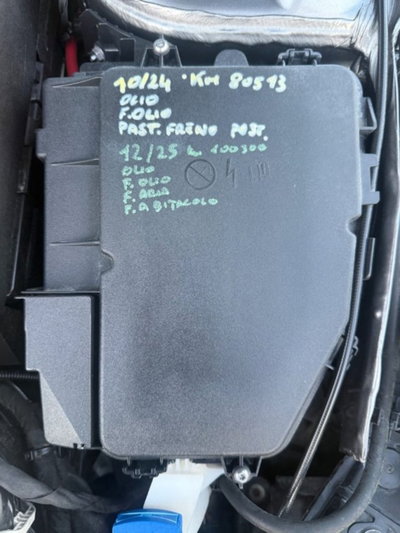 10/24 KM 80513
OLIO
F.OLIO
PAST. FRENO POST.
12/25 km 100300
OLIO
F. OLIO
F. ARIA
F. ABITACOLO